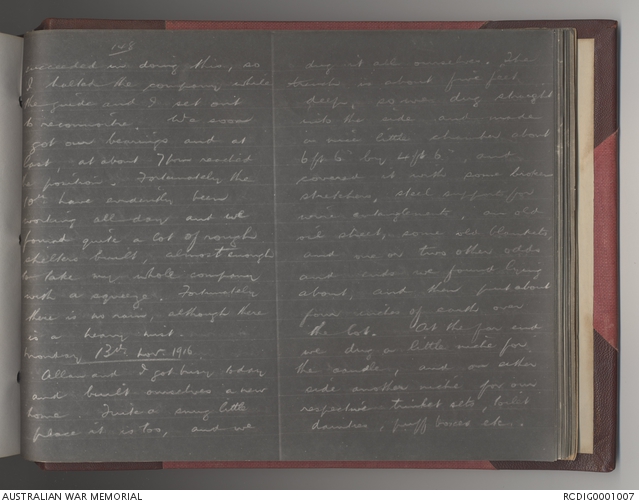 128
succeeded in doing this, so
I halted the company while
the guide and I set out
to reconnoitre. We soon
got our bearings and at
last, at about 7pm reached
position. Fortunately the
have evidently been
working all day and we
found quite a lot of rough
shelters built, almost enough
to take my whole company
with a squeeze. Fortunately
there is no rain, although there
is a heavy mist.
Monday 13th Nov. 1916.
Allen and I got busy today
and built ourselves a new
home. Quite a snug little
place it is too, and we
dug it all ourselves. The
trench is about five feet
deep, so we dug straight
into the side and made
a nice little chamber about
6ft 6" by 4ft 6", and
covered it with some broken
stretchers, steel supports for
wire entanglements, an old
oil sheet, some old blankets,
and one or two other odds
and ends we found lying
about, and then put about
four inches of earth over
the lot. At the far end
we dug a little niche for
the candle, and on either
side another niche for our
respective trinket sets,
, puff boxes etc.
AUSTRALIAN WAR MEMORIAL
RCDIG0001007